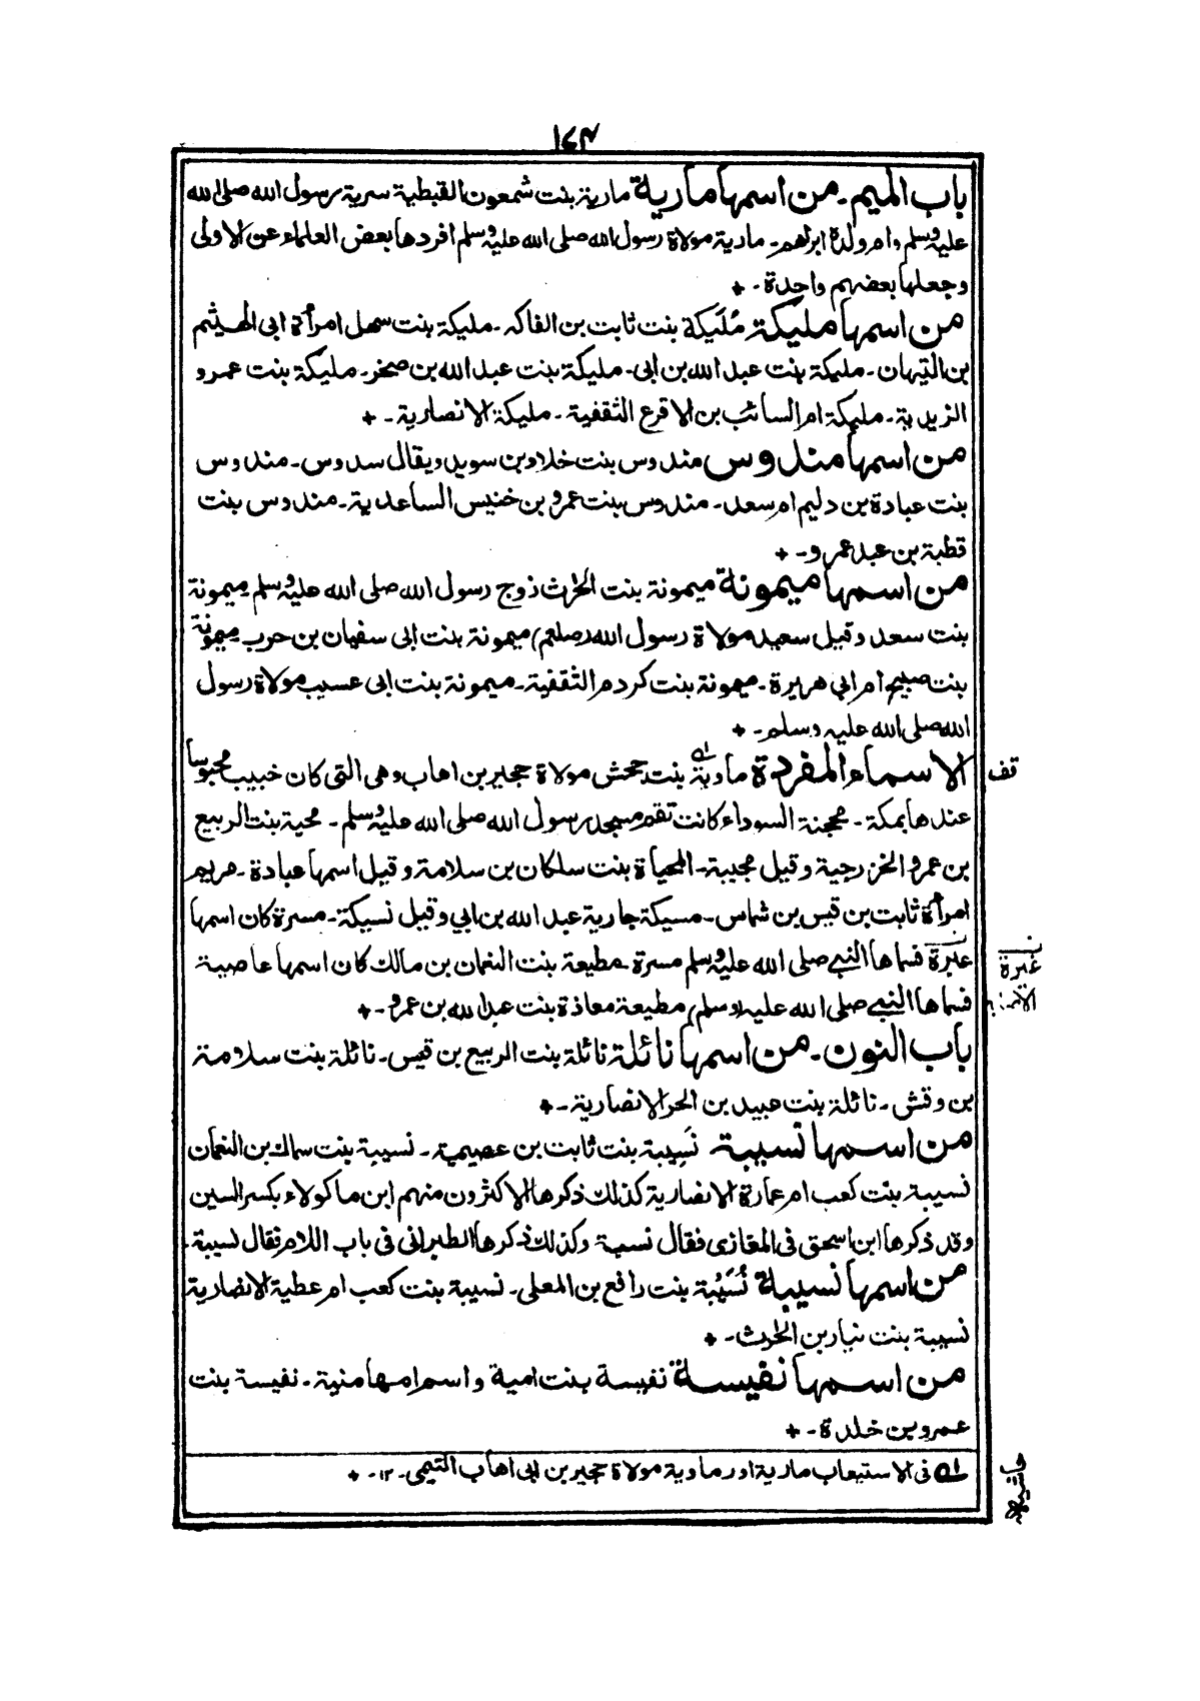 ١٤٣
باب الميم ـ من اسمها مارية مارية بنت شمعون القبطية سرية رسول الله صلى الله
عليه وسلم وام ولدة ابراهم ـ مادية مولاة رسول الله صلى الله عليه وسلم افردها بعض العلماء عن الاولى
وجعلها بعضهم واحدة ـ +
من اسمها مليكة مُلَيكة بنت ثابت بن الفاكه ـ مليكة بنت سهل امرأة ابى الهيثم
بن التيهان ـ مليكة بنت عبد الله بن ابى ـ مليكة بنت عبد الله بن صخر ـ مليكة بنت عمرو
الزيدية ـ مليكة ام السائب بن الاقرع الثقفية ـ مليكة الانصارية ـ +
من اسمها مندوس مندوس بنت خلاد بن سويد ويقال سدوس ـ مندوس
بنت عبادة بن دليم ام سعد ـ مندوس بنت عمرو بن خنيس الساعدية ـ مندوس بنت
قطبة بن عبد عمرو ـ +
من اسمها ميمونة ميمونة بنت الحٰرث زوج رسول الله صلى الله عليه وسلم ميمونة
بنت سعد وقيل سعيد مولاة رسول الله (صلعم) ميمونة بنت ابى سفيان بن حرب ميمونة
بنت صبيح ام ابي هريرة ـ ميمونة بنت كردم الثقفية ـ ميمونة بنت ابى عسيب مولاة رسول
الله صلى الله عليه وسلم ـ +
الاسماء المفردة ماوية بنت جحش مولاة حجير بن اهاب وهى التى كان خبيب محبوسا
قف
عندها بمكة ـ محجنة السوداء كانت تقم مسجد رسول الله صلى الله عليه وسلم ـ محية بنت الربيع
بن عمرو الخزرجية وقيل مجيبة ـ المحياة بنت سلكان بن سلامة وقيل اسمها عبادة ـ مريم
امرأة ثابت بن قيس بن شماس ـ مسيكة جارية عبد الله بن ابي وقيل نسيكة ـ مسرة كان اسمها
عنبرة فسماها النبي صلى الله عليه وسلم مسرة ـ مطيعة بنت النعمان بن مالك كان اسمها عاصية
فسماها النبي صلى الله عليه (وسلم) مطيعة معاذة بنت عبد الله بن عمرو ـ +
باب النون ـ من اسمها نائلة نائلة بنت الربيع بن قيس ـ نائلة بنت سلامة
بن وقش ـ نائلة بنت عبيد بن الحر الانصارية ـ +
من اسمها نسيبة نَسِيبة بنت ثابت بن عصيمة ـ نسيبة بنت سماك بن النعمان
نسيبة بنت كعب ام عمارة الانصارية كذلك ذكرها الاكثرون منهم ابن ماكولاء بكسر السين
وقد ذكرها ابن اسحق فى المغازى فقال نسبة وكذلك ذكرها الطبرانى فى باب اللام فقال لسيبة ـ
من اسمها نسيبة نُسَيْبة بنت رافع بن المعلى ـ نسيبة بنت كعب ام عطية الانصارية
نسيبة بنت نيار بن الحٰرث ـ +
من اسمها نفيسة نفيسة بنت امية واسم امها منية ـ نفيسة بنت
عمرو بن خلدة ـ +
فى الاستيعاب مارية اور مادية مولاة حجير بن ابى اهاب التيمى ـ ١٢ ـ +